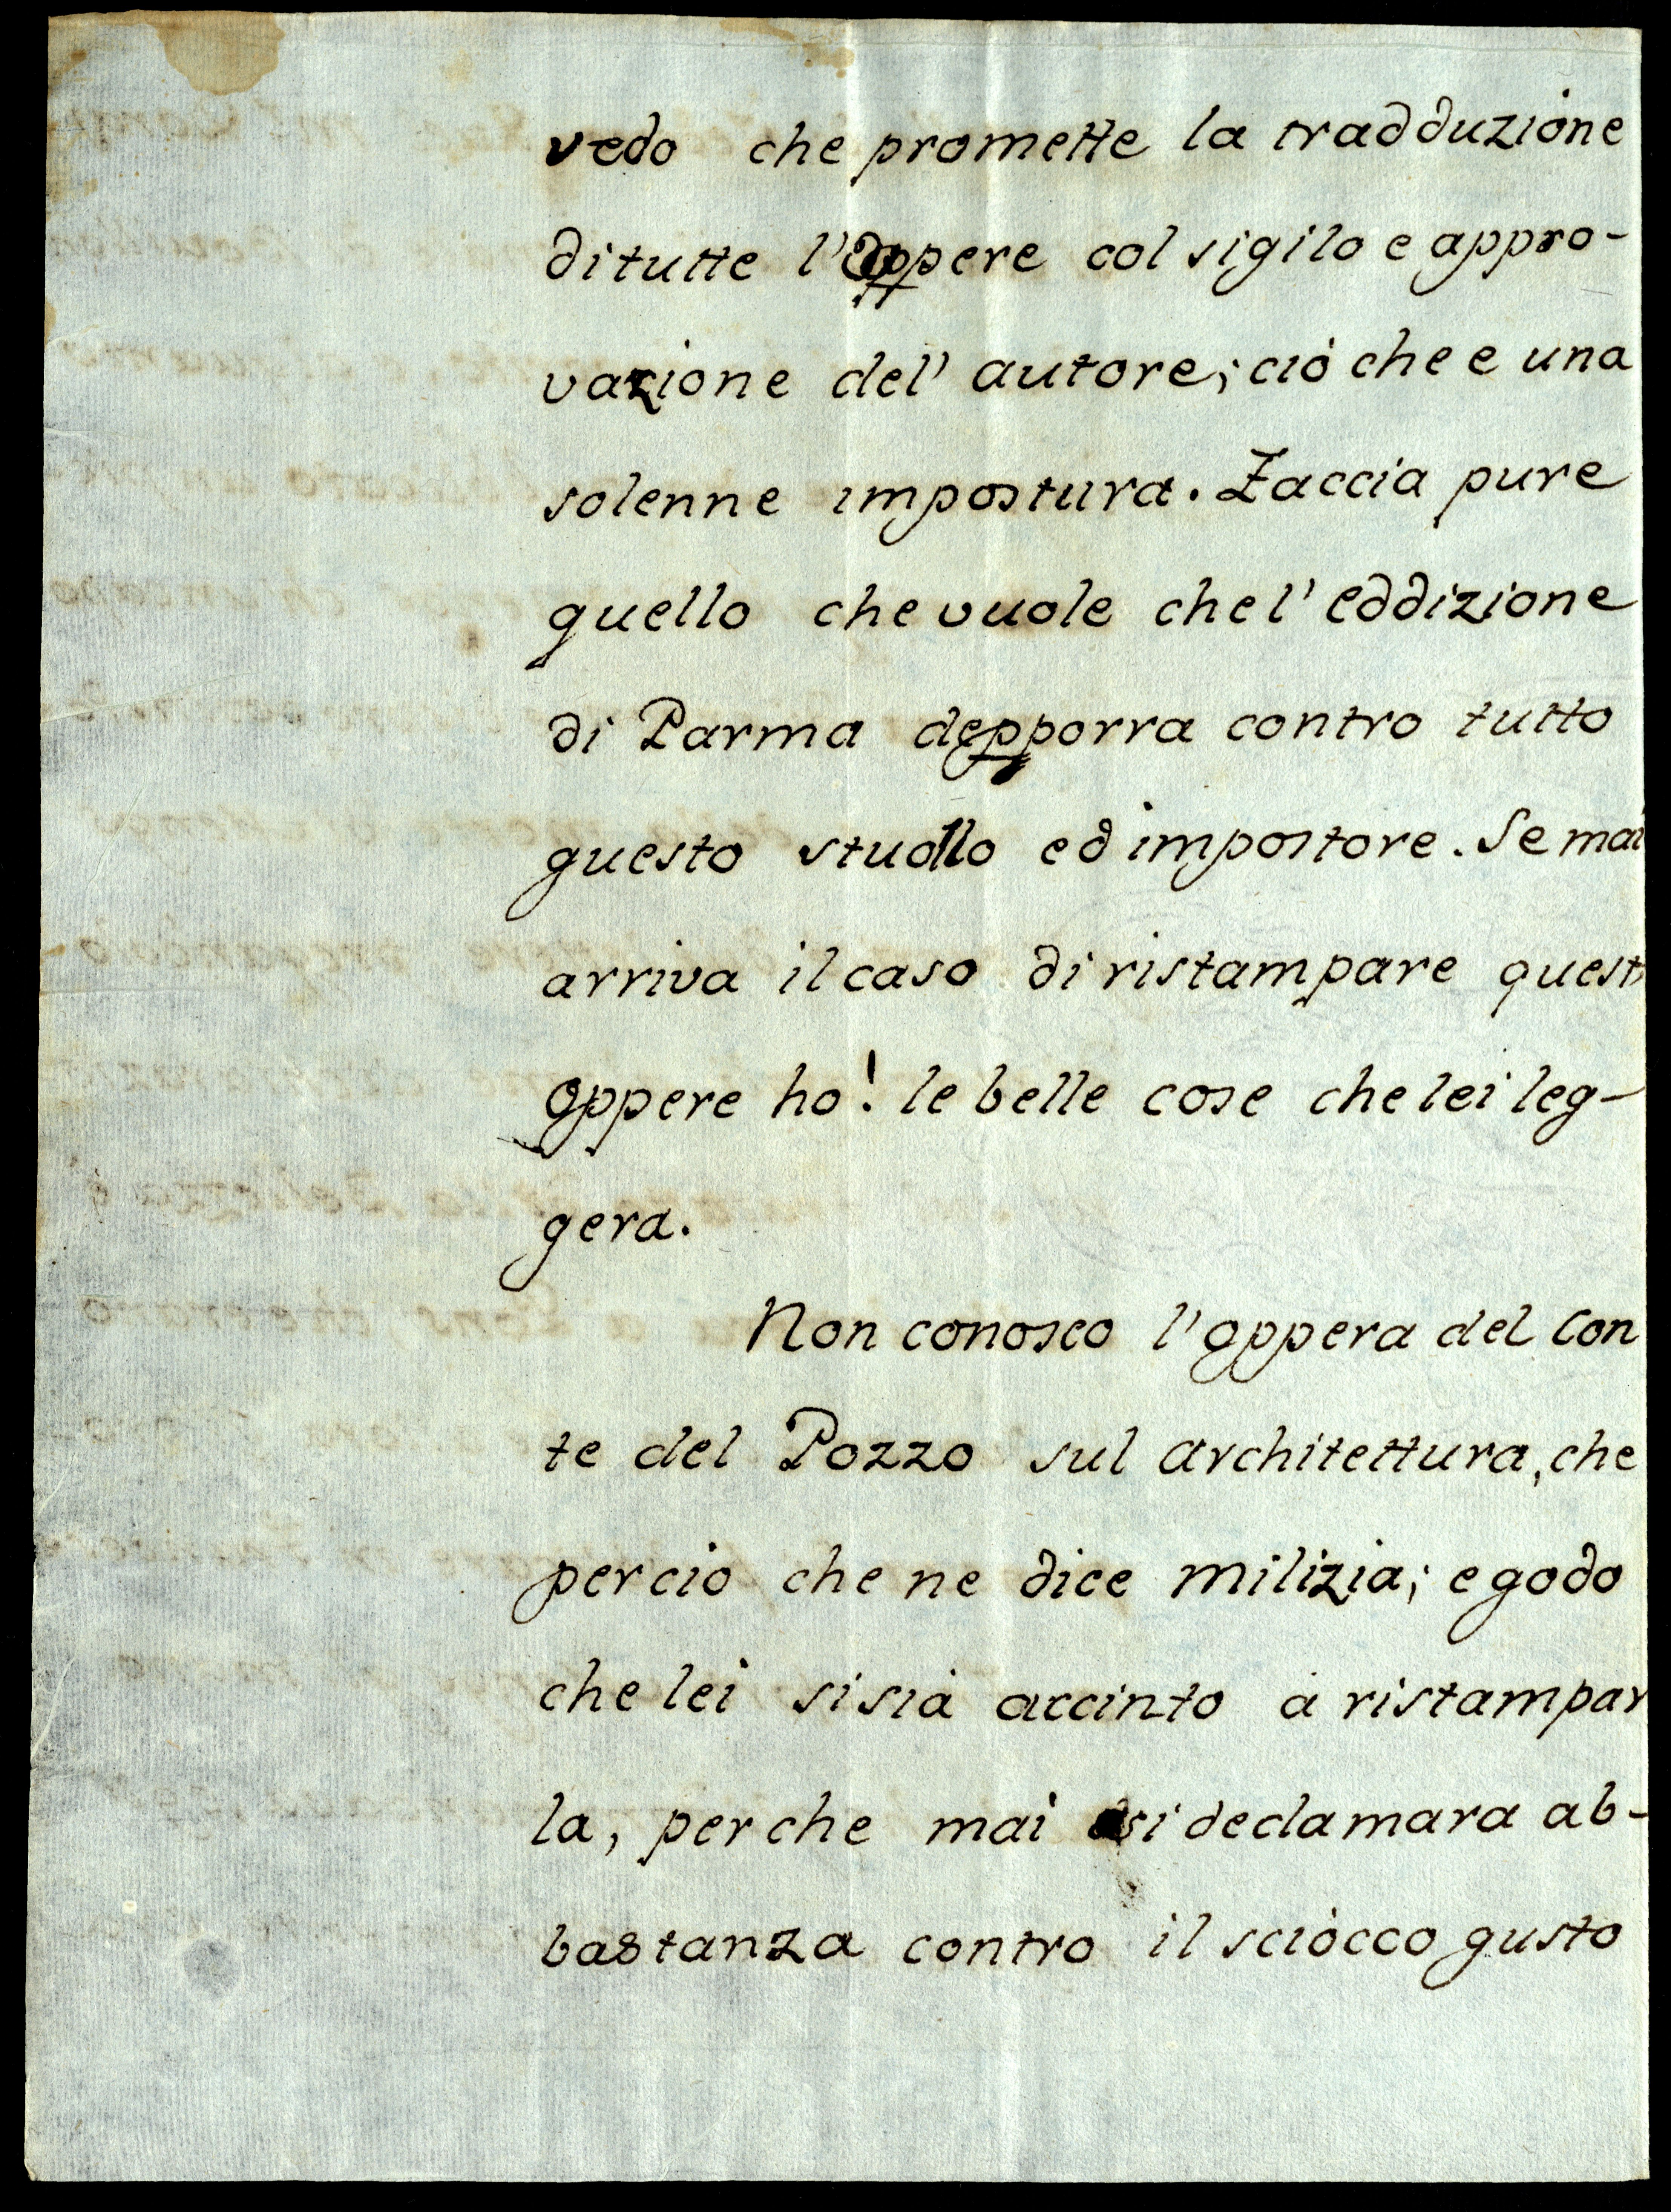 vedo che promette la tradduzione
di tutte l'oppere col sigilo e appro-
vazione del' autore; ciò che e una
solenne impostura. Faccia pure
quello che vuole che l' eddizione
di Parma depporra contro tutto
questo stuollo ed impostore. Se mai
arriva il caso di ristampare quest
oppere ho! le belle cose che lei leg-
gera.
Non conosco l'oppera del Con
te del Pozzo sul architettura, che
per cio che ne dice milizia; e godo
che lei si sia accinto à ristampar
la, per che mai si declamara ab-
bastanza contro il sciocco gusto